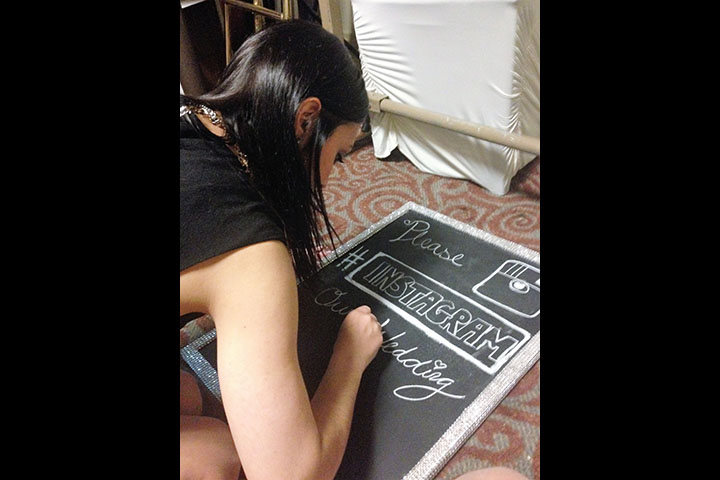 Please
# INSTAGRAM
Our Wedding